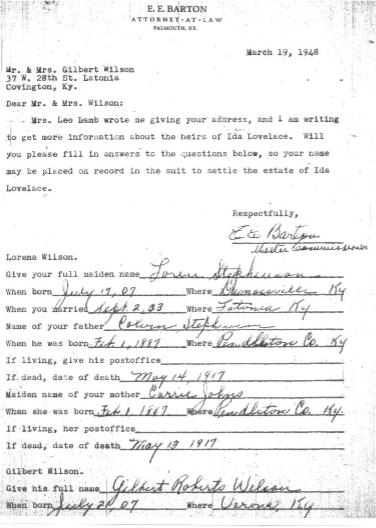 E. E. BARTON
ATTORNEY-AT-LAW
FALMOUTH, KY.
March 19, 1948
Mr. & Mrs. Gilbert Wilson
37 W. 28th St. Latonia
Covington, Ky.
Dear Mr. & Mrs. Wilson:
Mrs. Leo Lamb wrote me giving your address, and I am writing
to get more information about the heirs of Ida Lovelace. Will
you please fill in answers to the questions below, so your name
may be placed on record in the suit to settle the estate of Ida
Lovelace.
Respectfully,
E E Barton
Master Commissioner
Lorena Wilson.
Give your full maiden name Stephenson
When born July 17, 07 Where Demossville Ky
When you married Sept 2, 33 Where Latonia Ky
Name of your father
When he was born Feb 1, 1887 Where Pendleton Co. Ky
If living, give his postoffice
If dead, date of death May 14, 1917
Maiden name of your mother Carrie Johns
When she was born Feb 1 1887 Where Pendleton Co. Ky.
If living, her postoffice
If dead, date of death May 13 1917
Gilbert Wilson.
Give his full name Gilbert Roberts Wilson
When born July 2, 07 Where Verona Ky